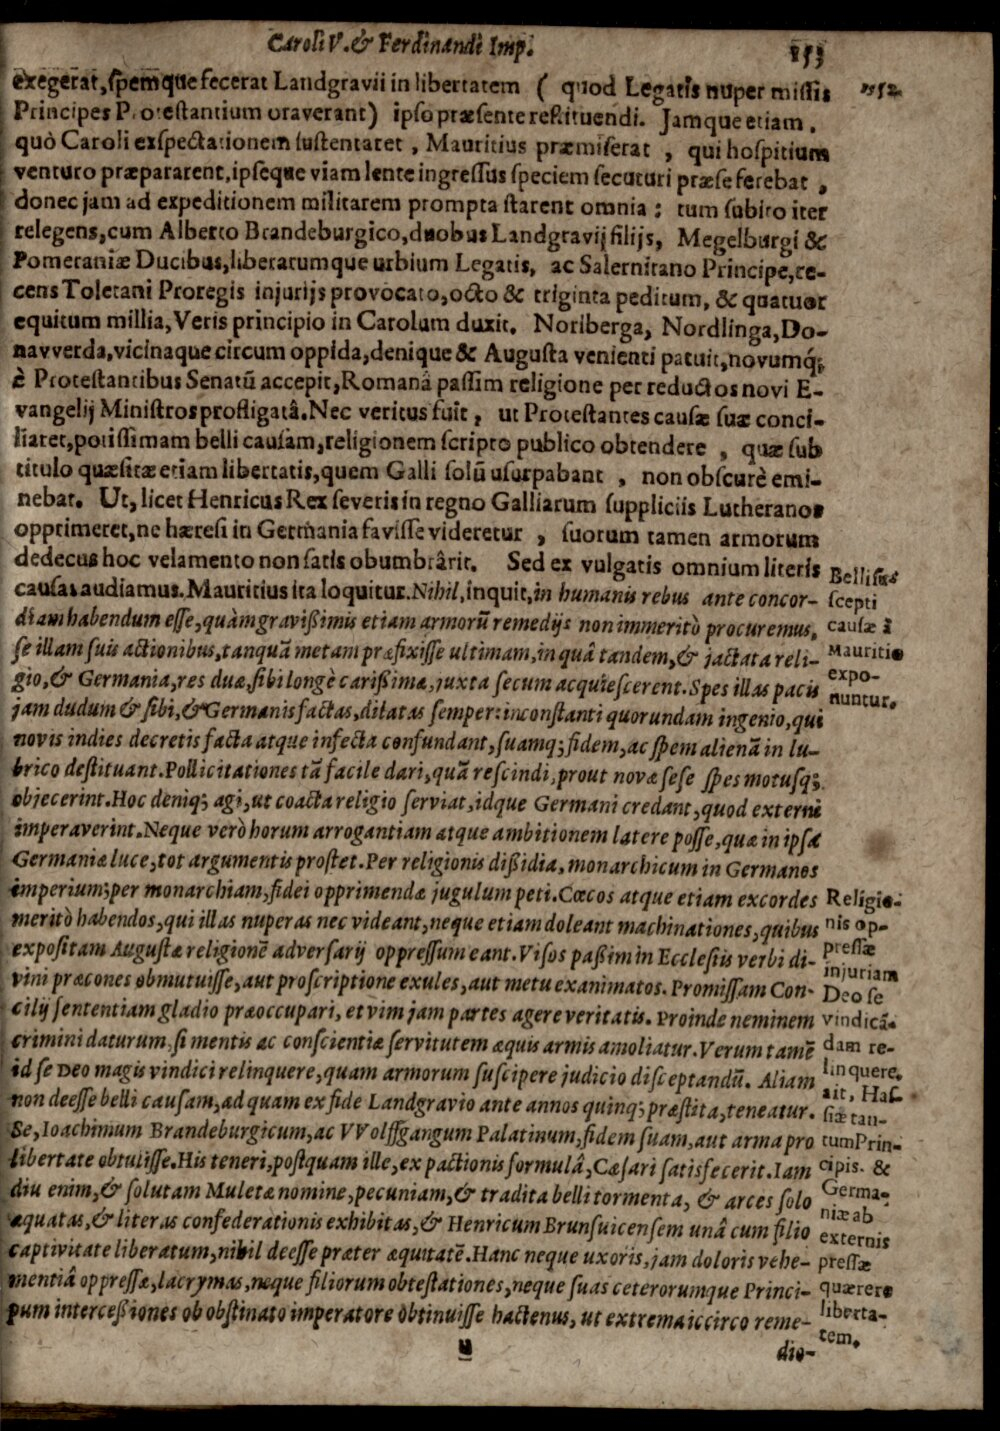 Caroli V. & Ferdinandi Imp. 153
exegerat, ſpemque fecerat Landgravii in libertatem ( quod Legatis nuper miſſis
1552
Principes Proteſtantium oraverant) ipſo præſente reſtituendi. Jamque etiam,
quò Caroli exſpectationem ſuſtentaret, Mauritius præmiſerat, qui hoſpitium
venturo præpararent, ipſeque viam lente ingreſſus ſpeciem ſecuturi præ ſe ferebat,
donec jam ad expeditionem militarem prompta ſtarent omnia: tum ſubito iter
relegens, cum Alberto Brandeburgico, duobus Landgravij filijs, Megelburgi &
Pomeraniæ Ducibus, liberarumque urbium Legatis, ac Salernitano Principe, re-
cens Toletani Proregis injurijs provocato, octo & triginta peditum, & quatuor
equitum millia, Veris principio in Carolum duxit. Noriberga, Nordlinga, Do-
navverda, vicinaque circum oppida, denique & Auguſta venienti patuit, novumq;
è Proteſtantibus Senatū accepit, Romanâ paſſim religione per reductos novi E-
vangelij Miniſtros profligatâ. Nec veritus fuit, ut Proteſtantes cauſæ ſuæ conci-
liaret, potiſſimam belli cauſam, religionem ſcripto publico obtendere, quæ ſub
titulo quæſitæ etiam libertatis, quem Galli ſolū uſurpabant, non obſcurè emi-
nebat. Ut, licet Henricus Rex ſeveris in regno Galliarum ſuppliciis Lutheranos
opprimeret, ne hæreſi in Germania faviſſe videretur, ſuorum tamen armorum
dedecus hoc velamento non ſatis obumbrârit. Sed ex vulgatis omnium literis
cauſas audiamus. Mauritius ita loquitur. Nihil, inquit, in humanis rebus ante concor-
diam habendum eſſe, quàm gravißimis etiam armorū remedijs non immeritò procuremus,
ſe illam ſuis actionibus, tanquā metam præfixiſſe ultimam, in quâ tandem, & jactata reli-
gio, & Germania, res duæ, ſibi longè carißimæ, juxta ſecum acquieſcerent. Spes illas pacis
jam dudum & ſibi, & Germanis factas, dilatas ſemper: inconſtanti quorundam ingenio, qui
novis indies decretis facta atque infecta confundant, ſuamq; fidem, ac ſpem alienā in lu-
brico deſtituant. Pollicitationes tā facile dari, quā reſcindi, prout novæ ſeſe ſpes motusq;
objecerint. Hoc deniq; agi, ut coacta religio ſerviat, idque Germani credant, quod externi
imperaverint. Neque verò horum arrogantiam atque ambitionem latere poſſe, quæ in ipſa
Germaniæ luce, tot argumentis proſtet. Per religionis dißidia, monarchicum in Germanos
imperium; per monarchiam, fidei opprimendæ jugulum peti. Cœcos atque etiam excordes
meritò habendos, qui illas nuperas nec videant, neque etiam doleant machinationes, quibus
expoſitam Auguſtæ religionē adverſarij oppreſſum eant. Viſos paßim in Eccleſiis verbi di-
vini præcones obmutuiſſe, aut proſcriptione exules, aut metu exanimatos. Promiſſam Con-
cilij ſententiam gladio præoccupari, et vim jam partes agere veritatis. Proinde neminem
crimini daturum, ſi mentis ac conſcientiæ ſervitutem æquis armis amoliatur. Verum tamē
id ſe Deo magis vindici relinquere, quam armorum ſuſcipere judicio diſceptandū. Aliam
non deeſſe belli cauſam, ad quam ex fide Landgravio ante annos quinq; præſtita, teneatur.
Se, Ioachimum Brandeburgicum, ac VVolffgangum Palatinum, fidem ſuam, aut arma pro
libertate obtuliſſe. His teneri, poſtquam ille, ex pactionis formulâ, Cæſari ſatisfecerit. Iam
diu enim, & ſolutam Muletæ nomine, pecuniam, & tradita belli tormenta, & arces ſolo
æquatas, & literas confederationis exhibitas, & Henricum Brunſuicenſem unâ cum filio
captivitate liberatum, nihil deeſſe præter æquitatē. Hanc neque uxoris, jam doloris vehe-
mentiâ oppreſſæ, lacrymas, neque filiorum obteſtationes, neque ſuas ceterorumque Princi-
pum interceßiones ob obſtinato imperatore obtinuiſſe hactenus, ut extrema iccirco reme-
u
dio-
Belli ſuſ-
ſcepti
cauſæ à
Mauritio
expo-
nuntur.
Religio-
nis op-
preſſæ
injuriam
Deo ſe
vindicā-
dam re-
linquere,
ait, Haſ-
ſiæ tan-
tum Prin-
cipis. &
Germa-
niæ ab
externis
preſſæ
quærere
liberta-
tem.